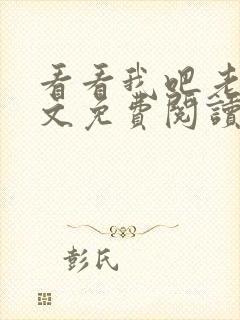 看看我吧老
文免费阅读
彭氏